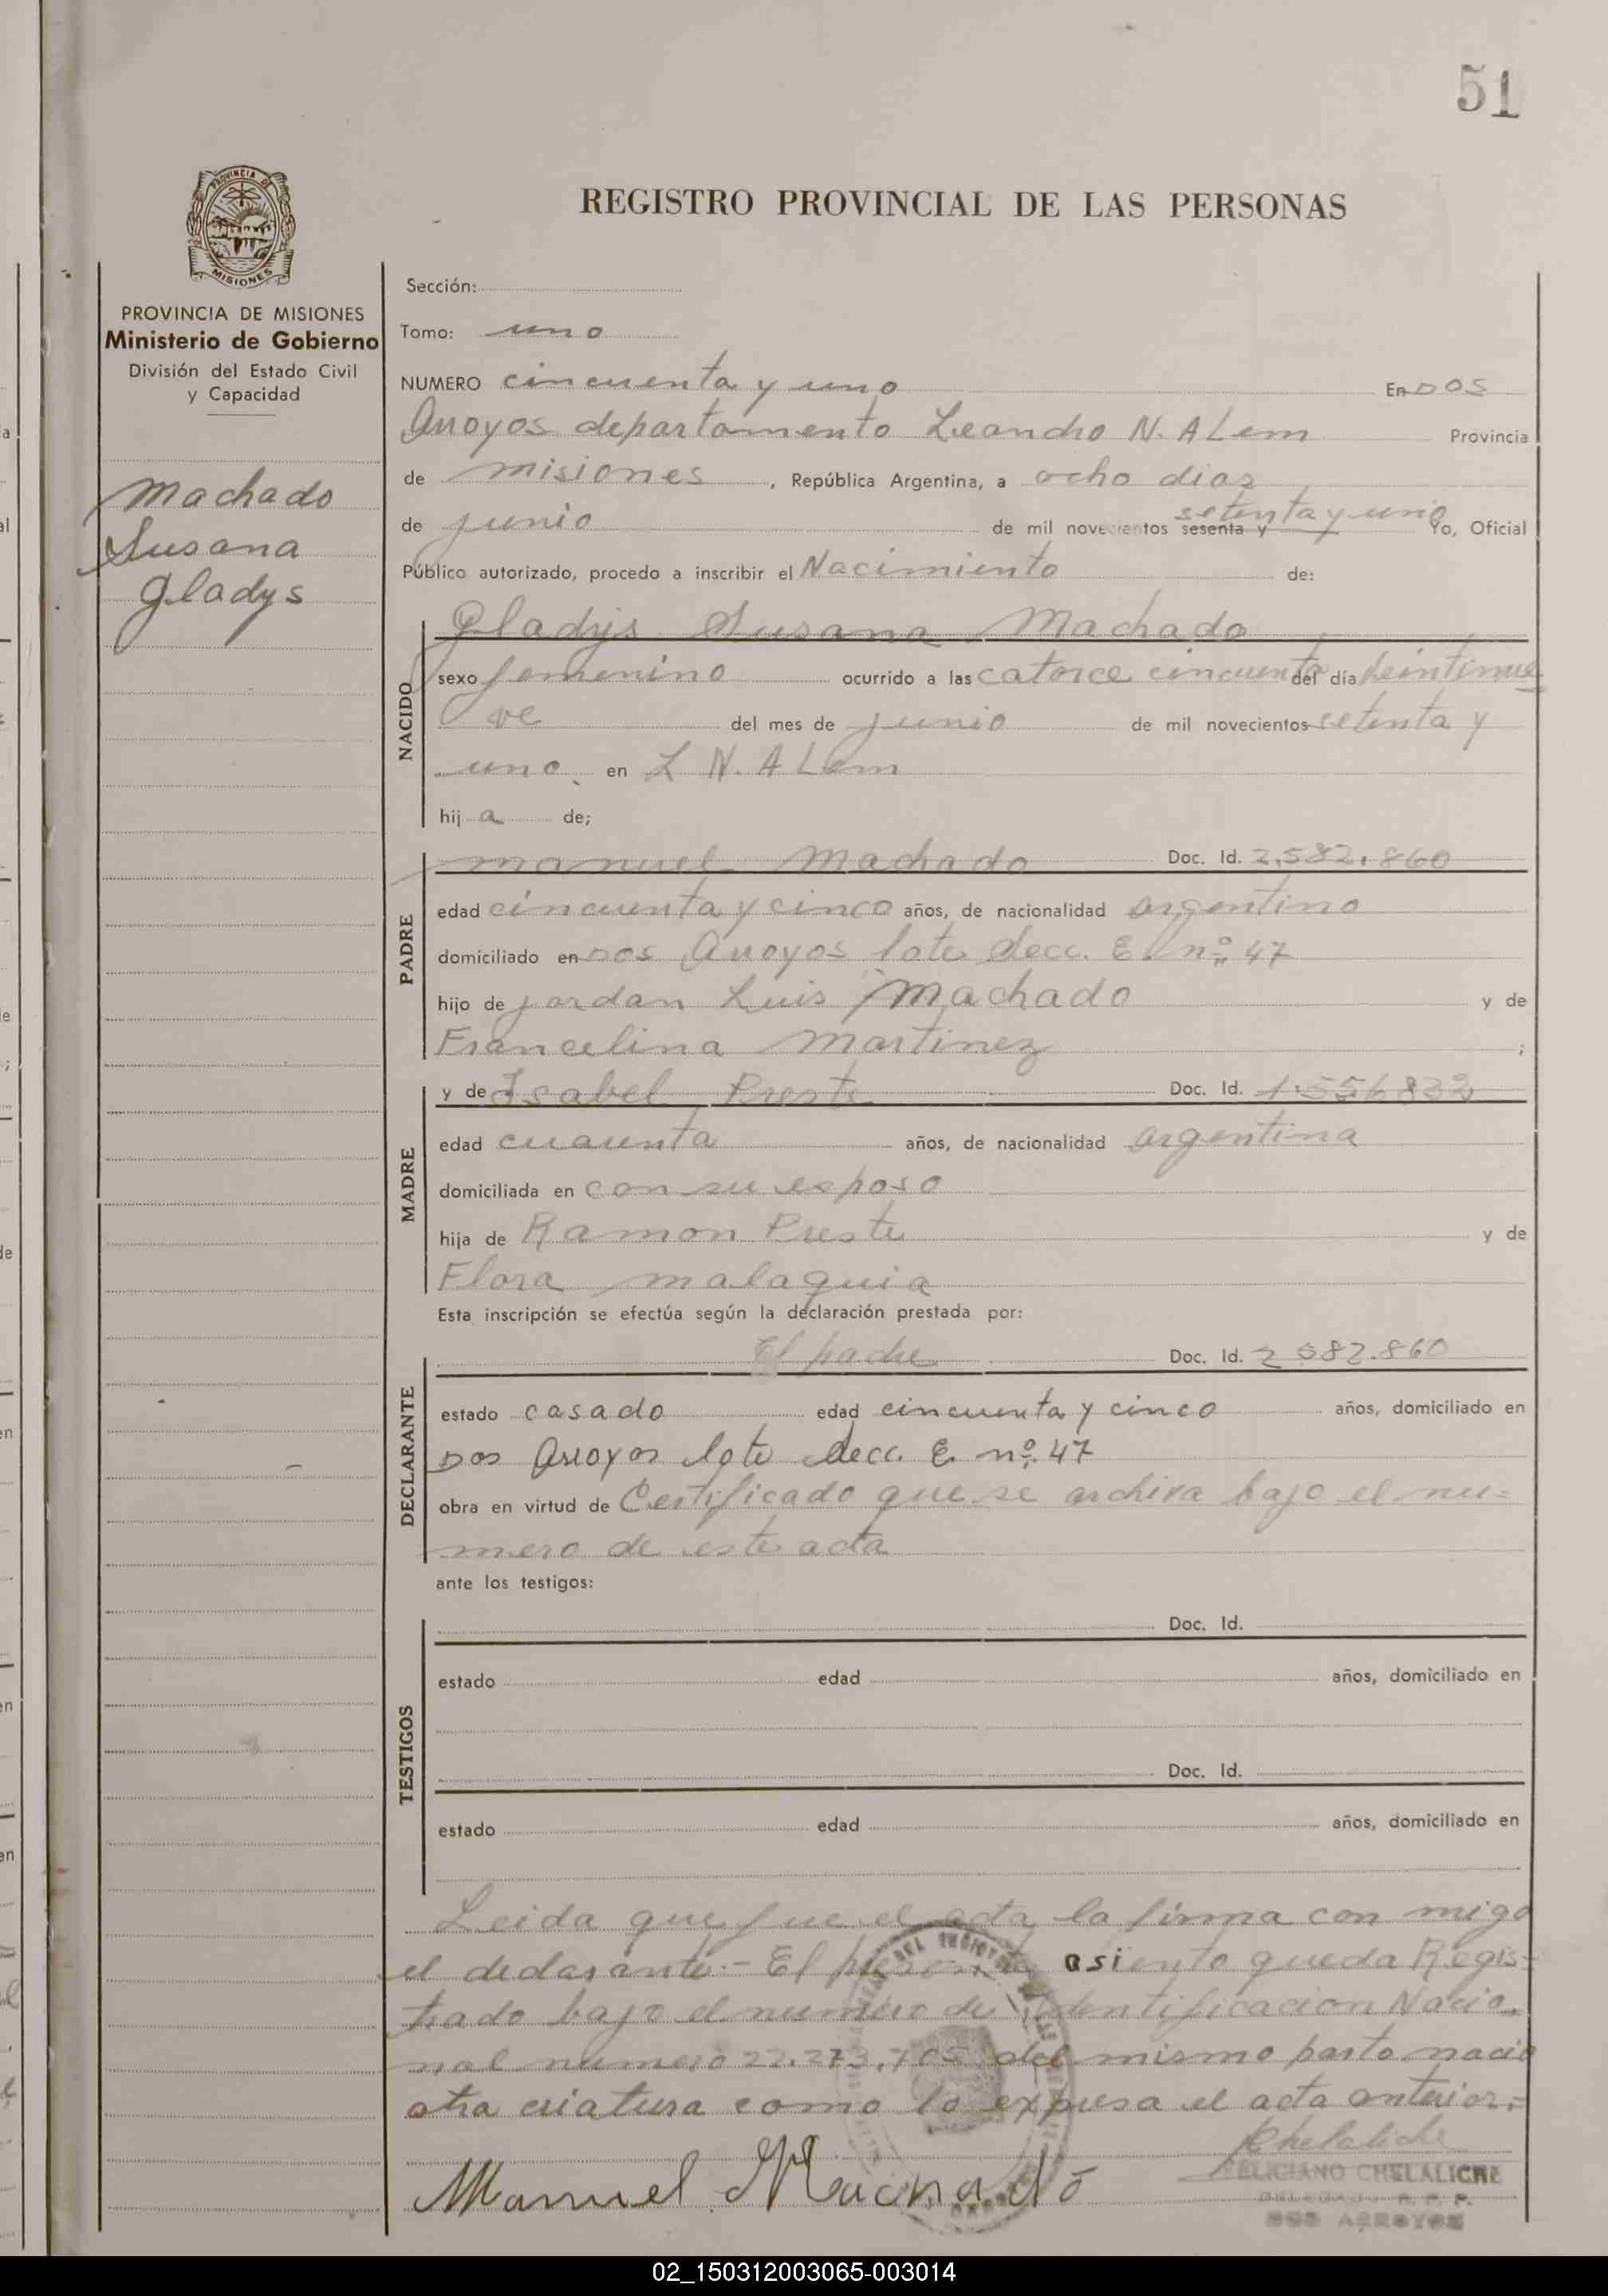 51
PROVINCIA DE
MISIONES
REGISTRO PROVINCIAL DE LAS PERSONAS
PROVINCIA DE MISIONES
Ministerio de Gobierno
División del Estado Civil
y Capacidad
Machado
Susana
Gladys
Sección:
Tomo: uno
NUMERO cincuenta y uno En DOS
Arroyos departamento Leandro N. ALem Provincia
de misiones, República Argentina, a ocho dias
de junio de mil novecientos sesenta y setenta y uno Yo, Oficial
Público autorizado, procedo a inscribir el Nacimiento de:
Gladys Susana Machado
NACIDO
sexo femenino ocurrido a las catorce cincuenta del día veintinue
ve del mes de junio de mil novecientos setenta y
uno. en L N. ALem
hij a de;
PADRE
manuel Machado Doc. Id. 2.582.860
edad cincuenta y cinco años, de nacionalidad argentino
domiciliado en Dos Arroyos lote Secc. E. nº 47
hijo de jordan Luis Machado y de
Francelina Martinez ;
MADRE
y de Isabel Preste Doc. Id. 1.556832
edad cuarenta años, de nacionalidad argentina
domiciliada en con su esposo
hija de Ramon Preste y de
Flora malaquia
Esta inscripción se efectúa según la declaración prestada por:
DECLARANTE
El padre Doc. Id. 2 582.860
estado casado edad cincuenta y cinco años, domiciliado en
Dos Arroyos lote Secc. E. nº 47
obra en virtud de Certificado que se archiva bajo el nu-
mero de este acta
ante los testigos:
TESTIGOS
Doc. Id.
estado edad años, domiciliado en
Doc. Id.
estado edad años, domiciliado en
Leida que fue el acta la firma con migo
el declarante.- El presente asiento queda Regis-
trado bajo el numero de Identificacion Nacio-
nal numero 22.273.705 del mismo parto nacio
otra criatura como lo expresa el acta anterior.-
Manuel Machado
Chelaliche
FELICIANO CHELALICHE
DELEGADO R. P. P.
DOS ARROYOS
02_150312003065-003014